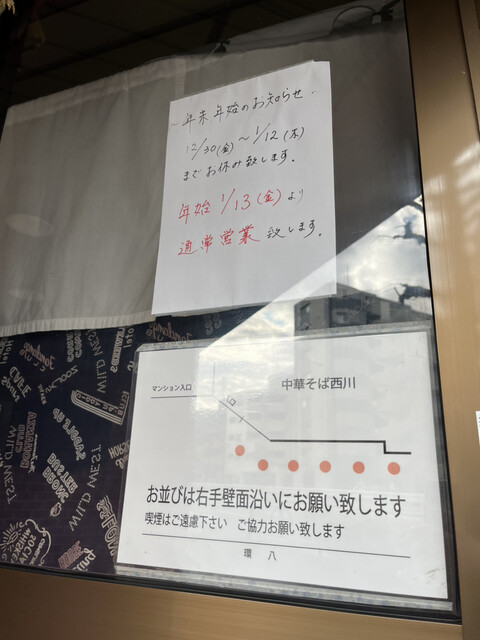 ~年末年始のお知らせ~
12/30(金)~1/12(木)
までお休み致します。
年始1/13(金)より
通常営業致します。
マンション入口
中華そば西川
入口
お並びは右手壁面沿いにお願い致します
喫煙はご遠慮下さい ご協力お願い致します
環 八
WILD WEST
WILD WEST
WILD WEST